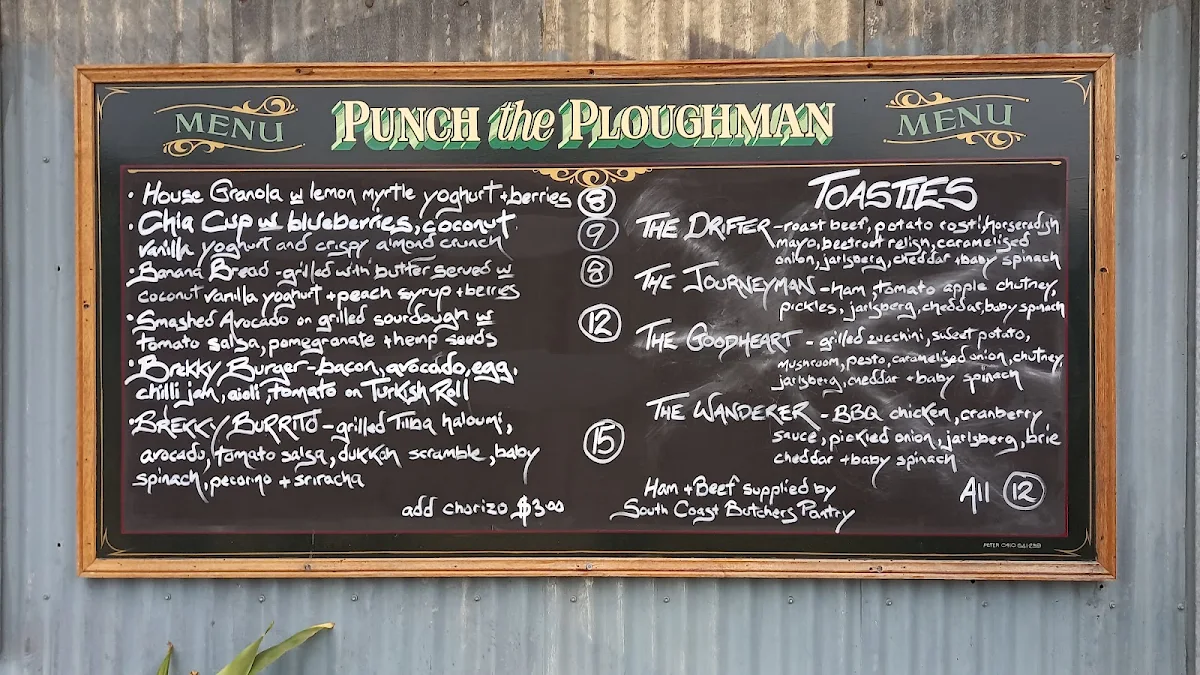 MENU
PUNCH the PLOUGHMAN
MENU
• House Granola w lemon myrtle yoghurt + berries 8
• Chia Cup w blueberries, coconut 9
vanilla yoghurt and crispy almond crunch
• Banana Bread - grilled with butter served w 8
coconut vanilla yoghurt + peach syrup + berries
• Smashed Avocado on grilled sourdough w 12
tomato salsa, pomegranate + hemp seeds
• Brekky Burger - bacon, avocado, egg,
chilli jam, aioli, tomato on Turkish Roll
• BREKKY BURRITO - grilled Tilba haloumi, 15
avocado, tomato salsa, dukkah scramble, baby
spinach, pecorino + sriracha
add chorizo $3.00
TOASTIES
THE DRIFTER - roast beef, potato rosti, horseradish
mayo, beetroot relish, caramelised
onion, jarlsberg, cheddar + baby spinach
THE JOURNEYMAN - ham, tomato apple chutney,
pickles, jarlsberg, cheddar, baby spinach
THE GOODHEART - grilled zucchini, sweet potato,
mushroom, pesto, caramelised onion, chutney,
jarlsberg, cheddar + baby spinach
THE WANDERER - BBQ chicken, cranberry
sauce, pickled onion, jarlsberg, brie
cheddar + baby spinach
All 12
Ham + Beef supplied by
South Coast Butchers Pantry